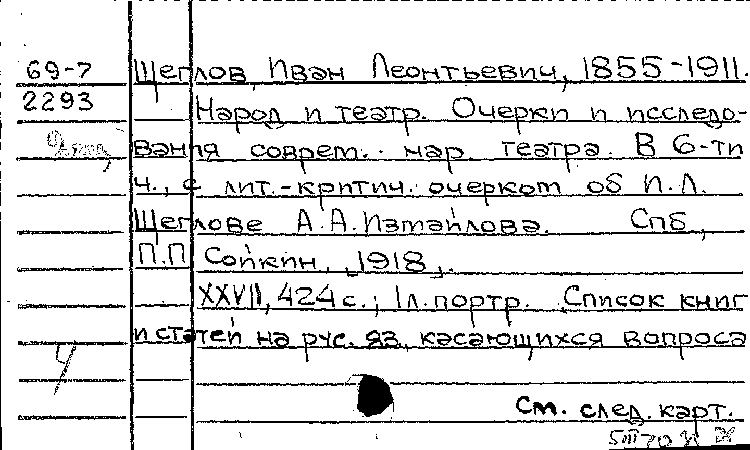 69-7 Щеглов, Иван Леонтьевич, 1855-1911.
2293 Народ и театр. Очерки и исследо-
вания соврем. нар. театра. В 6-ти
ч., с лит.-критич. очерком об И.Л.
Щеглове А.А.Измайлова. Спб,
П.П Сойкин, 1918,.
XXVII, 424 с.; 1л.портр. Список книг
и статей на рус. яз. касающихся вопроса
См. след. карт.